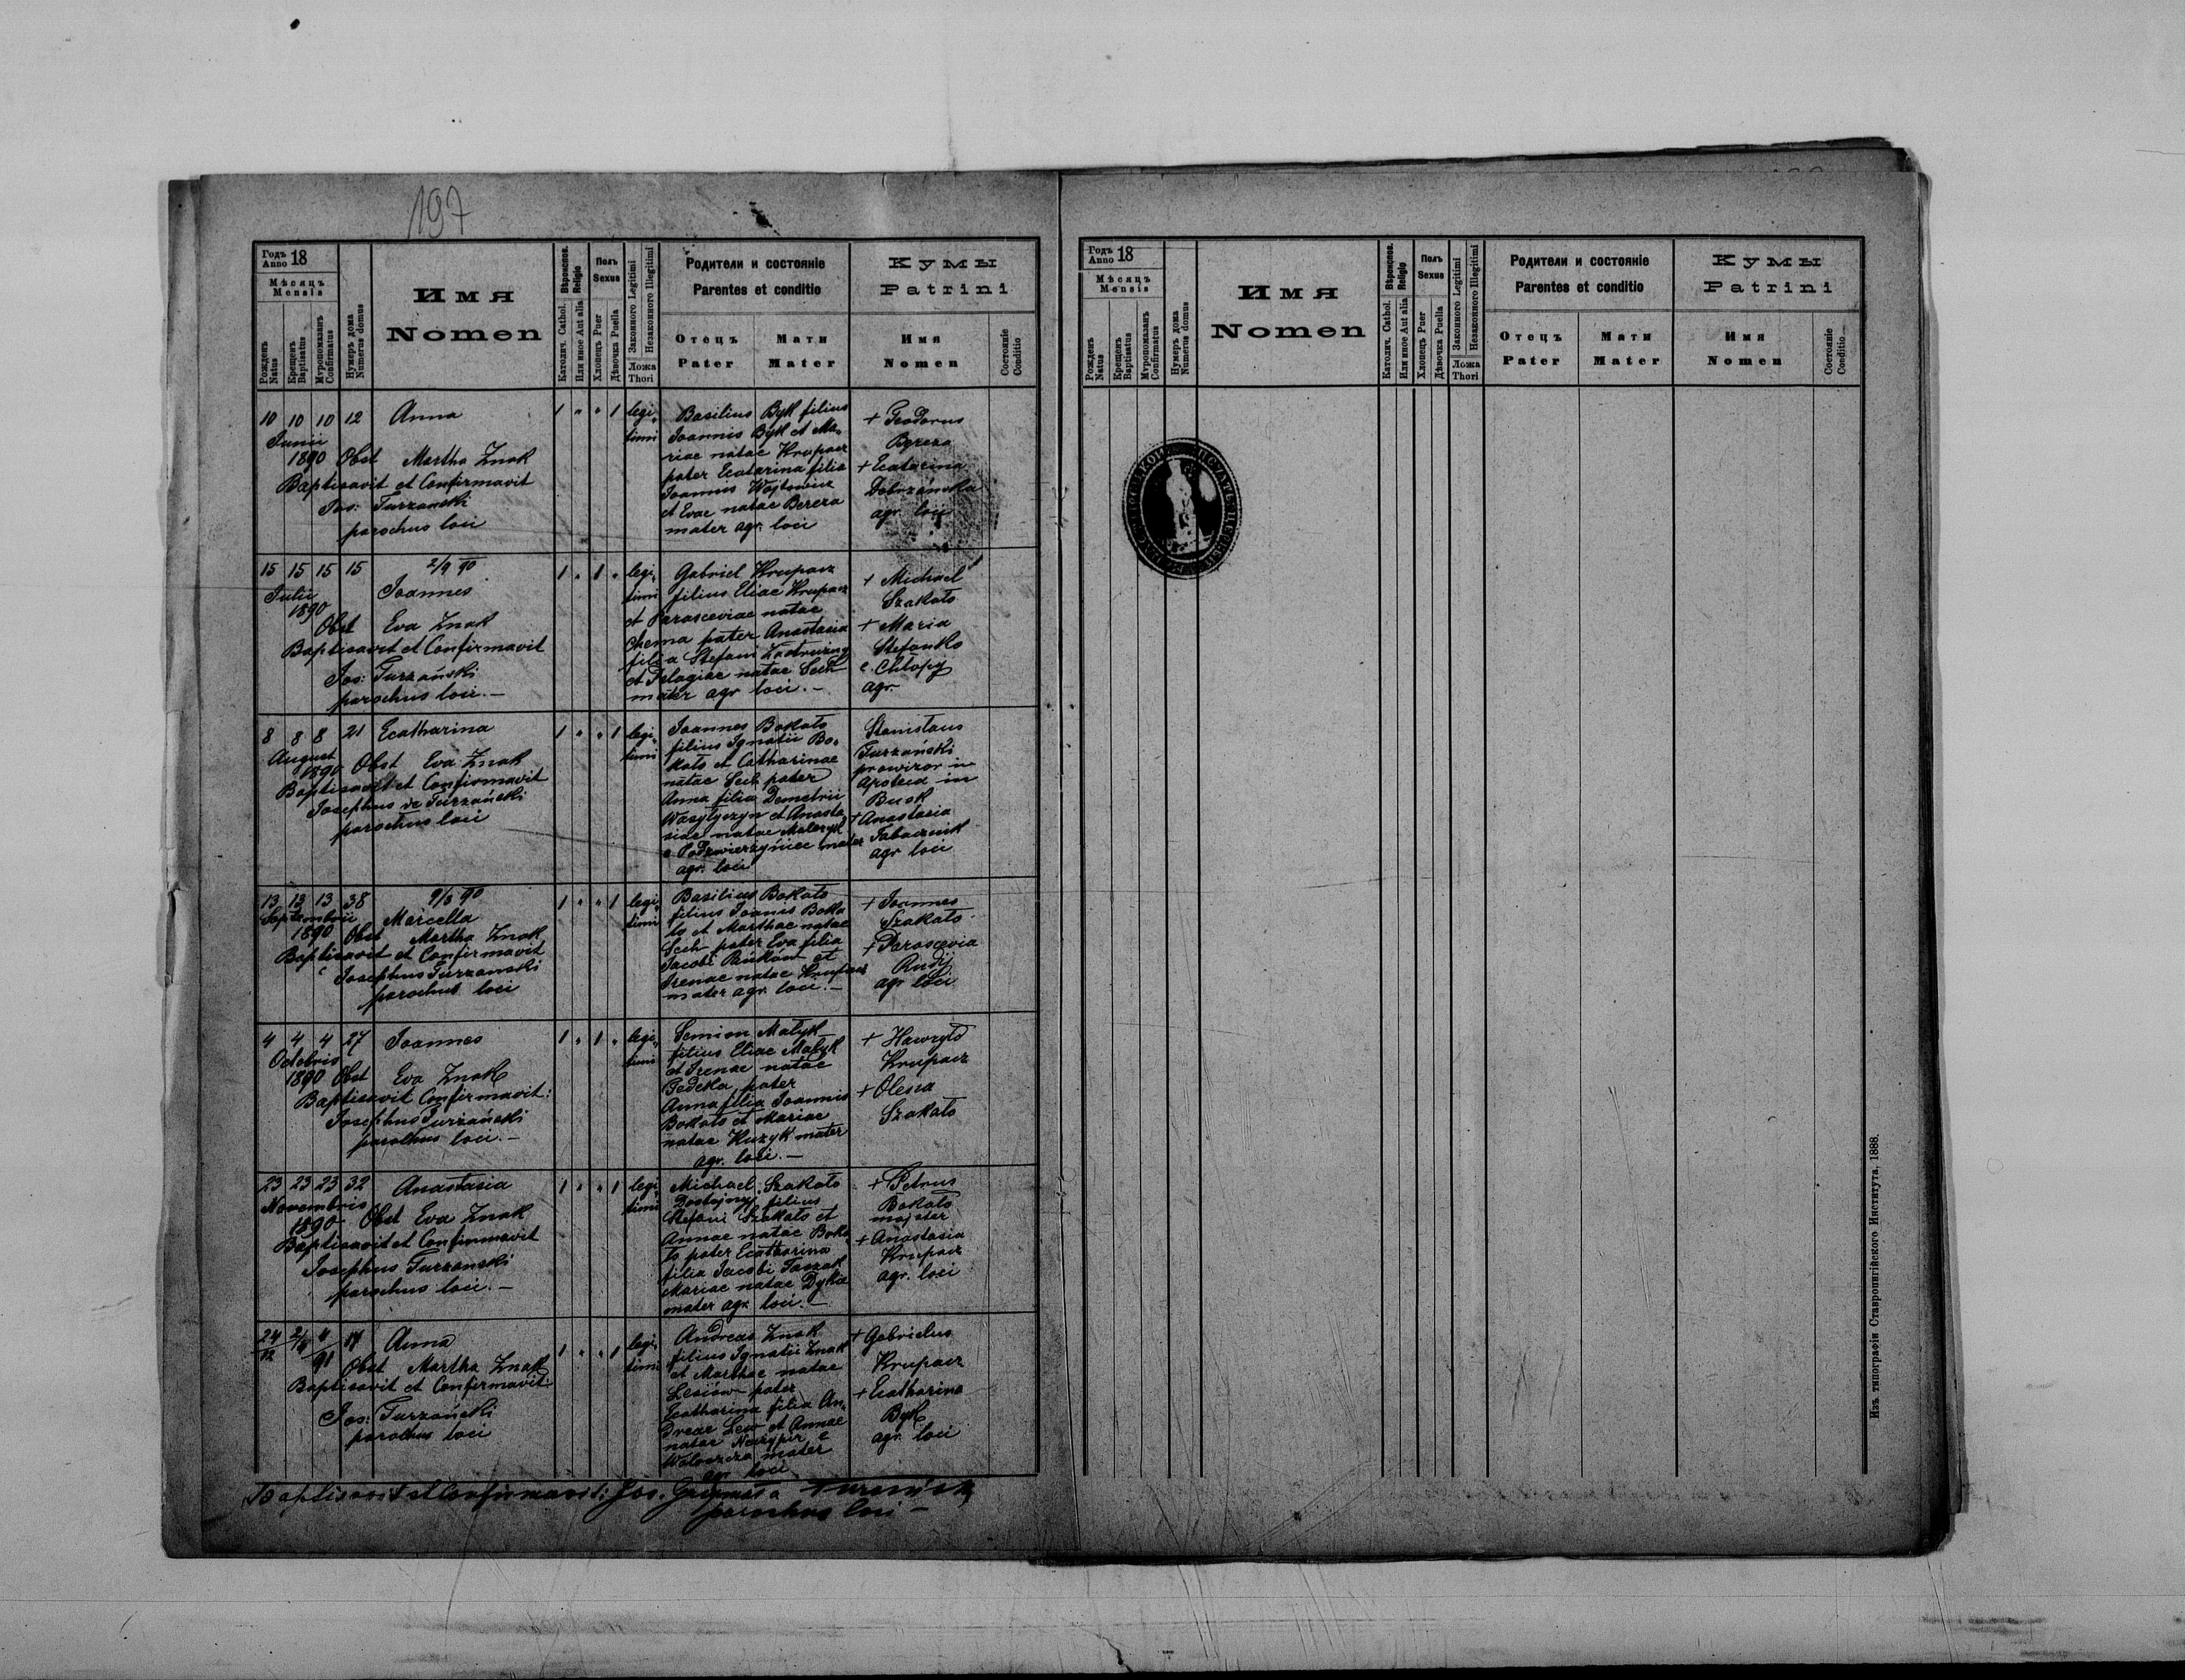 197
Годъ Anno 18
Мѣсяцъ
Mensis
Рожденъ Natus
Крещенъ Baptisatus
Мѵропомазанъ Confirmatus
Нумеръ дома Numerus domus
Имя
Nomen
Вѣроиспов. Religio
Католич. Cathol.
Или иное Aut alia
Полъ
Sexus
Хлопецъ Puer
Дѣвочка Puella
Законного Legitimi
Незаконного Illegitimi
Ложа
Thori
Родители и состоянiе
Parentes et conditio
Отецъ
Pater
Мати
Mater
Кумы
Patrini
Имя
Nomen
Состоянiе
Conditio
10 10 10 12 Anna 1 " " 1 legi
timi
Junii
1890 Obst Martha Znak
Baptisavit et Confirmavit
Jos: Turzanski
parochus loci
Basilius Byk filius
Joannis Byk et Ma-
riae natae Krupacz
pater Ecatarina filia
Joannis Wojtowicz
et Evae natae Bereza
mater agr. loci
+ Teodorus
Bereza
+ Ecatarina
Dobrzańska
agr. loci
15 15 15 15 2/9 90 1 " 1 " legi
timi
Julii
1890
Joannes
Obst Eva Znak
Baptisavit et Confirmavit
Jos: Turzański
parochus loci. —
Gabriel Krupacz
filius Eliae Krupacz
et Parasceviae natae
pater Anastasia
filia Stefani
et Pelagiae natae Sech
mater agr loci. —
+ Michael
Szakało
+ Maria
Stefanko
e. Chłopy
agr.
8 8 8 21 Ecatharina 1 " " 1 legi
timi
August
1890 Obst Eva Znak
Baptisavit et Confirmavit
Josephus de Turzański
parochus loci
Joannes Bokało
filius Ignatii Bo-
kało et Catharinae
natae Sech pater
Anna filia Demetrii
Wasyłyczyn et Anasta
siae natae
e Podzwierzyniec mater
agr. loci
Stanislaus
Turzański
prowizor in
Apoteca in
Busk
+ Anastasia
Tabaczuik
agr loci
13 13 13 38 9/3 90 1 " " 1 legi
timi
Septembrii
1890
Marcella
Obst Martha Znak
Baptisavit et Confirmavit
Josephus Turzanski
parochus loci
Basilius Bokało
filius Joanis Boka
ło et Marthae natae
Sech pater Eva filia
Jacobi et
Irenae natae Krupacz
mater agr. loci. —
+ Joannes
Szakało
+ Parascevia
Rudÿ
agr loci
4 4 4 27 Joannes 1 " 1 " legi
timi
Octobris
1890 Obst Eva Znak
Baptisavit Confirmavit:
Josephus Turzański
parochus loci. —
Semion Małyk
filius Eliae Małyk
et Irenae natae
Fedeka pater
Anna filia Joannis
Bokało et Mariae
natae Kuzyk mater
agr. loci. —
+ Hawryło
Krupacz
+ Olena
Szakało
23 23 23 32 Anastasia 1 " " 1 legi
timi
Novembris
1890 Obst Eva Znak
Baptisavit et Confirmavit
Josephus Turzanski
parochus loci. —
Michael Szakało
Dostojny filius
Stefani Szakało et
Annae natae Boka
ło pater Ecatharina
filia Jacobi
Mariae natae Dyka
mater agr. loci. —
+ Petrus
Bokało
majster
+ Anastasia
Krupacz
agr. loci
24/12 Anna 1 " " 1 legi
timi
Obst Martha Znak
Baptisavit et Confirmavit:
Jos: Turzański
parochus loci
Andreas Znak
filius Ignatii Znak
et Marthae natae
Lesiów pater
Ecatharina filia An-
dreae Lew et Annae
natae e
mater
agr loci
+ Gabrielus
Krupacz
+ Ecatharina
Byk
agr. loci
Baptisavit et Confirmavit: Jos. Turański
parochus loci —
Годъ Anno 18
Мѣсяцъ
Mensis
Рожденъ Natus
Крещенъ Baptisatus
Мѵропомазанъ Confirmatus
Нумеръ дома Numerus domus
Имя
Nomen
Вѣроиспов. Religio
Католич. Cathol.
Или иное Aut alia
Полъ
Sexus
Хлопецъ Puer
Дѣвочка Puella
Законного Legitimi
Незаконного Illegitimi
Ложа
Thori
Родители и состоянiе
Parentes et conditio
Отецъ
Pater
Мати
Mater
Кумы
Patrini
Имя
Nomen
Состоянiе
Conditio
Изъ типографіи Ставропигійского Института. 1888.